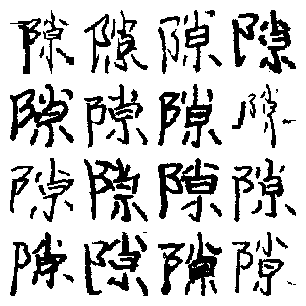 隙隙隙隙
隙隙隙隙
隙隙隙隙
隙隙隙隙